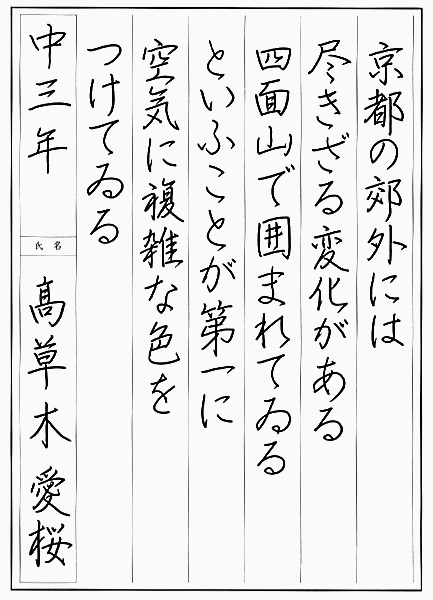 京都の郊外には
尽きざる変化がある
四面山で囲まれてゐる
といふことが第一に
空気に複雑な色を
つけてゐる
中三年
氏名
髙草木愛桜